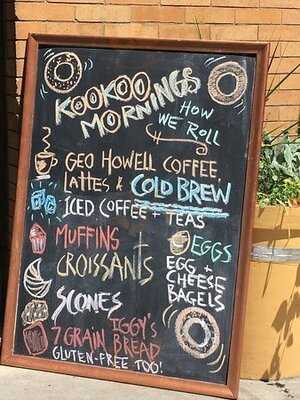 KOOKOO
MORNINGS
HOW
WE ROLL
GEO HOWELL COFFEE,
LATTES & COLD BREW
ICED COFFEE + TEAS
MUFFINS
CROISSANTS
SCONES
EGGS
EGG +
CHEESE
BAGELS
IGGY'S
7 GRAIN BREAD
GLUTEN-FREE TOO!